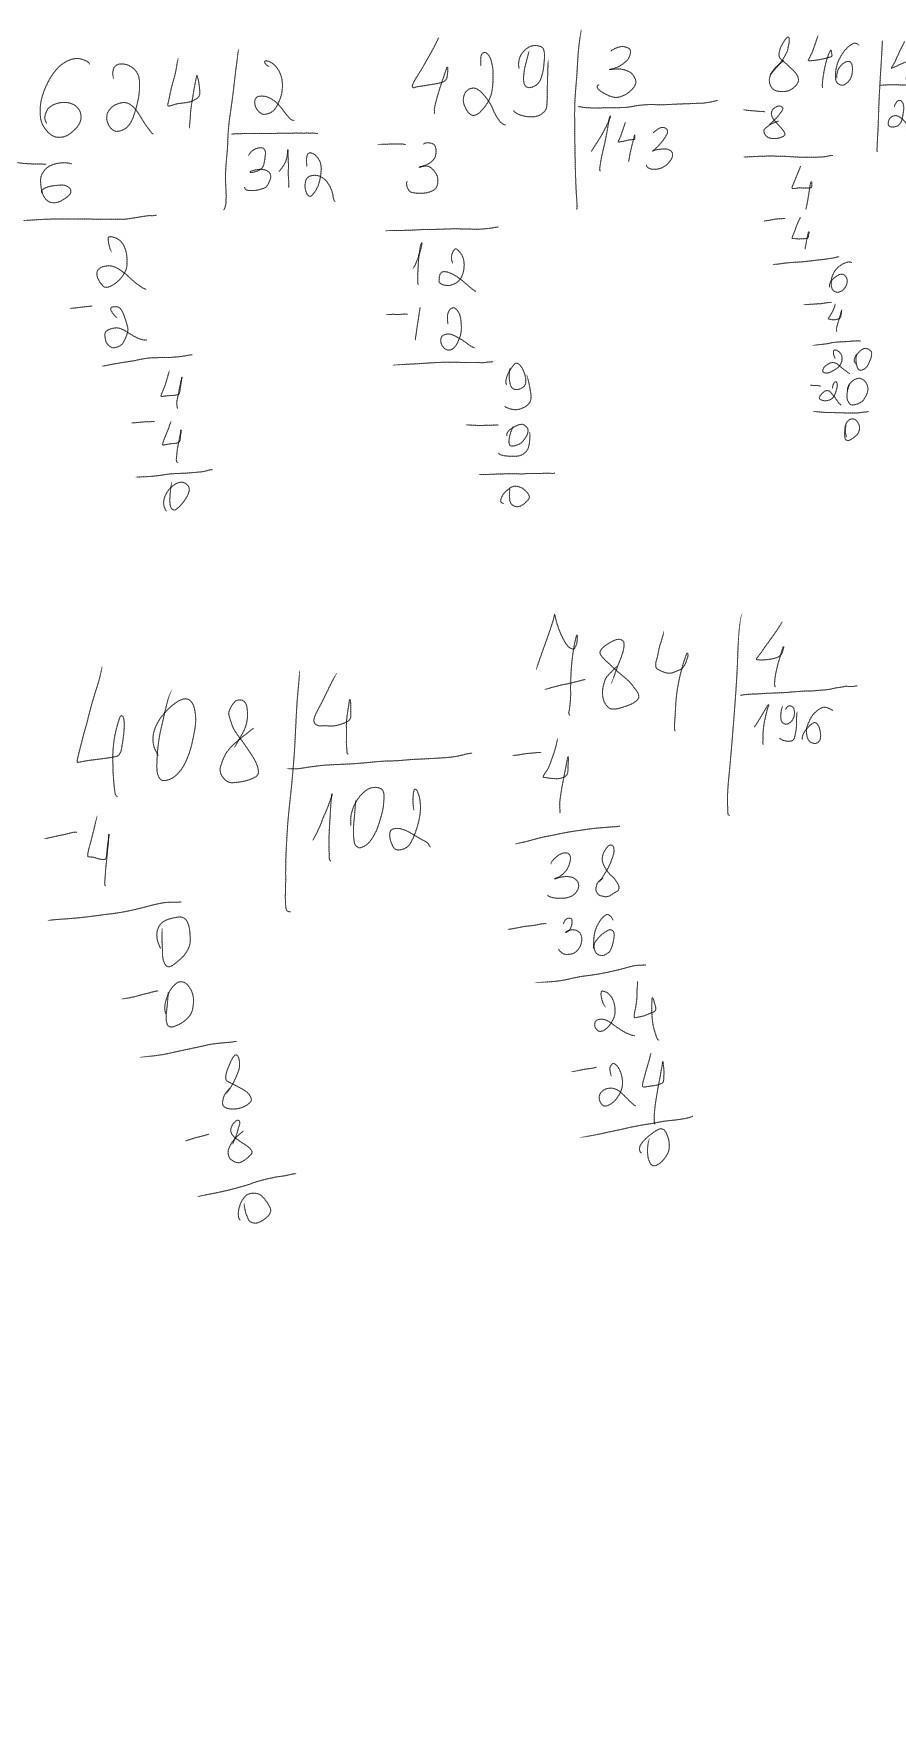 624 2
-6 312
2
-2
4
-4
0
429 3
-3 143
12
-12
9
-9
0
846 4
-8 2
4
-4
6
-4
20
-20
0
408 4
-4 102
0
-0
8
-8
0
784 4
-4 196
38
-36
24
-24
0